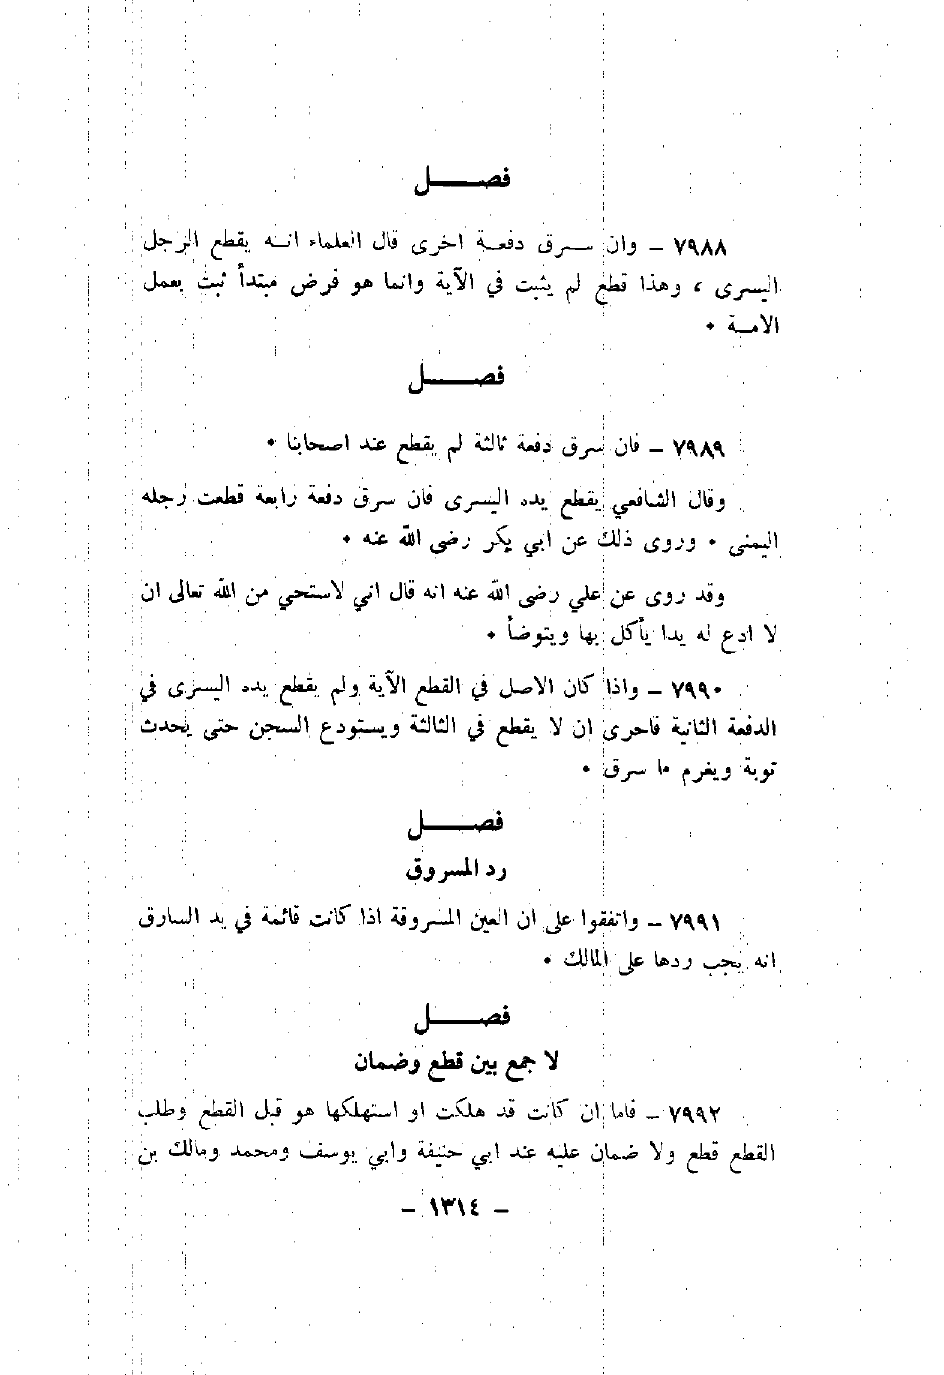 فصــــل
٧٩٨٨ ــ وان ســرق دفعــة اخرى قال العلماء انــه يقطع الرجل
اليسرى ، وهذا قطع لم يثبت في الآية وانما هو فرض مبتدأ ثبت بعمل
الامــة ٠
فصــــل
٧٩٨٩ ــ فان سرق دفعة ثالثة لم يقطع عند اصحابنا ٠
وقال الشافعي يقطع يده اليسرى فان سرق دفعة رابعة قطعت رجله
اليمنى ٠ وروى ذلك عن ابي بكر رضى الله عنه ٠
وقد روى عن علي رضى الله عنه انه قال اني لاستحي من الله تعالى ان
لا ادع له يدا يأكل بها ويتوضأ ٠
٧٩٩٠ ــ واذا كان الاصل في القطع الآية ولم يقطع يده اليسرى في
الدفعة الثانية فاحرى ان لا يقطع في الثالثة ويستودع السجن حتى يحدث
توبة ويغرم ما سرق ٠
فصــــل
رد المسروق
٧٩٩١ ــ واتفقوا على ان العين المسروقة اذا كانت قائمة في يد السارق
انه يجب ردها على المالك ٠
فصــــل
لا جمع بين قطع وضمان
٧٩٩٢ ــ فاما ان كانت قد هلكت او استهلكها هو قبل القطع وطلب
القطع قطع ولا ضمان عليه عند ابي حنيفة وابي يوسف ومحمد ومالك بن
ــ ١٣١٤ ــ